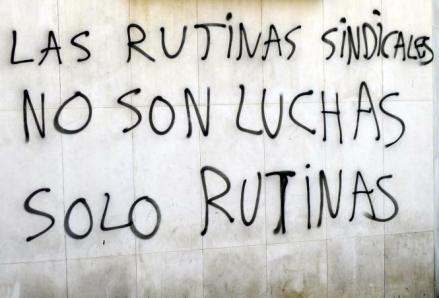 LAS RUTINAS SINDICALES
NO SON LUCHAS
SOLO RUTINAS